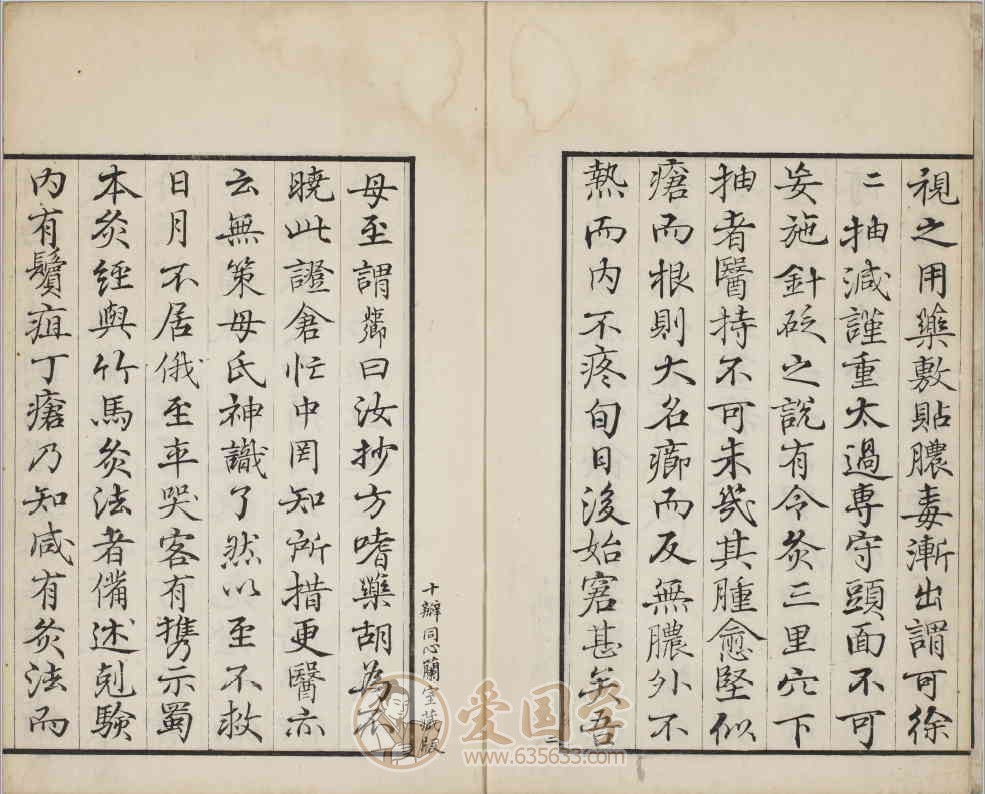 視之用藥敷貼膿毒漸出謂可徐
二抽減謹重太過専守頭面不可
妄施針砭之說有令灸三里穴下
抽者醫持不可未幾其腫愈堅似
瘡而根則大名癤而反無膿外不
熱而内不疼旬日後始窘甚矣吾
母至謂曰汝抄方嗜藥胡為不
曉此證倉忙中罔知所措更醫亦
云無策母氏神識了然以至不救
日月不居俄至卒哭客有携示蜀
本灸經與竹馬灸法者備述剋驗
内有鬢疽丁瘡乃知咸有灸法而
十瓣同心蘭室藏版
二
愛国学
www.635633.com